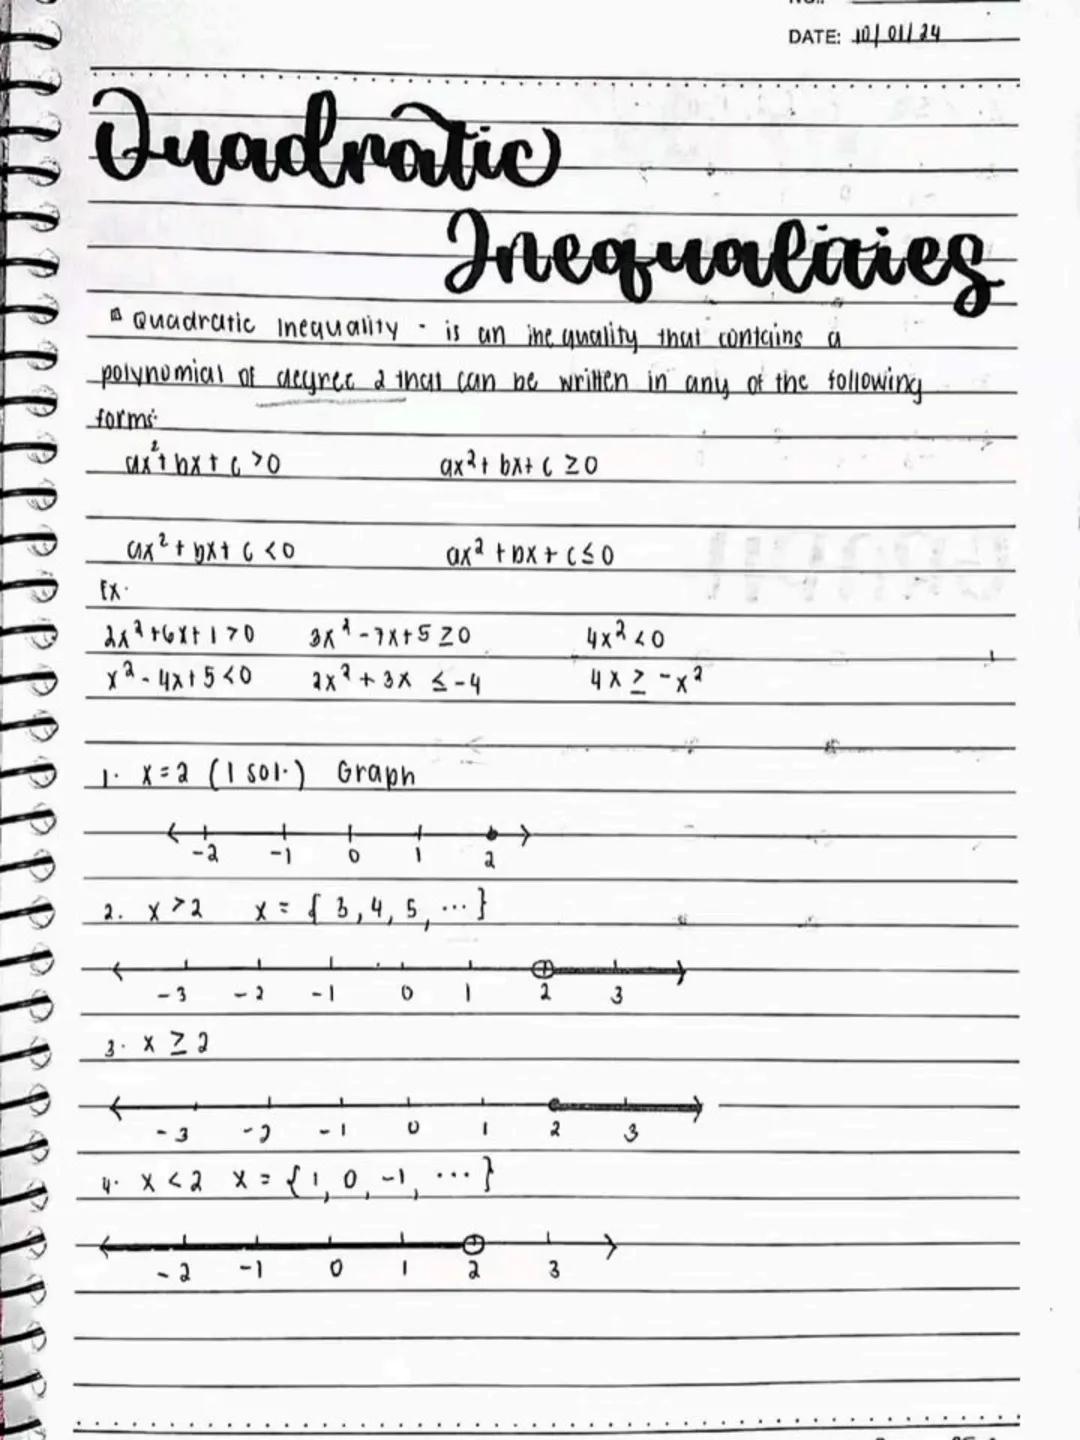 NO.:
DATE: 10/01/24
Quadratic
Inequalities
Quadratic Inequality - is an inequality that contains a
polynomial of degree 2 that can be written in any of the following
forms:
ax²+bx+c >0 ax²+bx+c ≥0
ax²+bx+c <0 ax²+bx+c≤0
Ex.
2x²+6x+1>0 3x²-7x+5≥0 4x²<0
x²-4x+5<0 2x²+3x ≤-4 4x≥-x²
1. x=2 (1 sol.) Graph
-2 -1 0 1 2
2. x>2 x={3,4,5,...}
-3 -2 -1 0 1 2 3
3. x≥2
-3 -2 -1 0 1 2 3
4. x<2 x={1,0,-1,...}
-2 -1 0 1 2 3